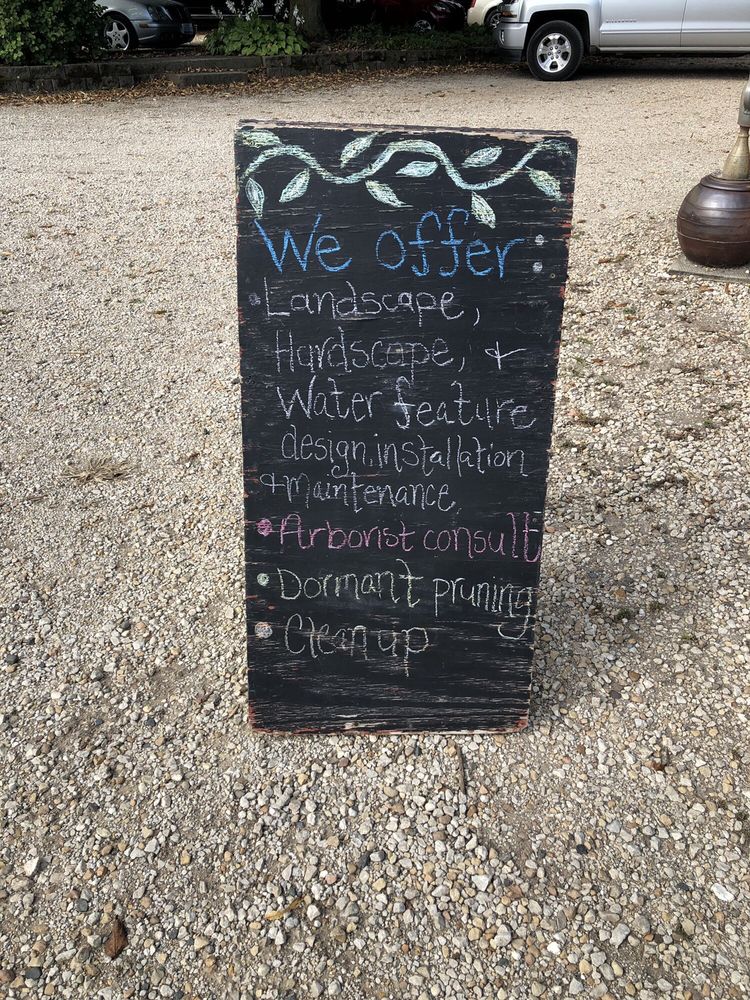 We offer:
• Landscape,
Hardscape, +
Water feature
design, installation
+ maintenance.
• Arborist consult
• Dormant pruning
• Clean up